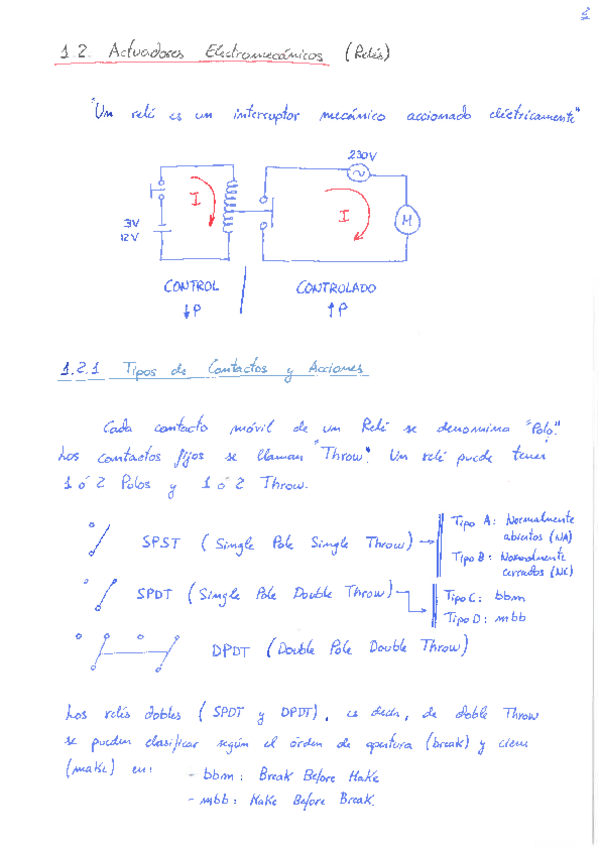 1.2. Actuadores Electromecánicos (Relés)
"Un relé es un interruptor mecánico accionado eléctricamente"
230V
I
I
M
3V
12V
CONTROL
CONTROLADO
↓P
↑P
1.2.1 Tipos de Contactos y Acciones
Cada contacto móvil de un Relé se denomina "Polo".
Los contactos fijos se llaman "Throw". Un relé puede tener
1 ó 2 Polos y 1 ó 2 Throw.
SPST (Single Pole Single Throw) →
Tipo A: Normalmente
abiertos (NA)
Tipo B: Normalmente
cerrados (NC)
SPDT (Single Pole Double Throw)
Tipo C: bbm
Tipo D: mbb
DPDT (Double Pole Double Throw)
Los relés dobles (SPDT y DPDT), es decir, de doble Throw
se pueden clasificar según el orden de apertura (break) y cierre
(make) en:
- bbm: Break Before Make
- mbb: Make Before Break.